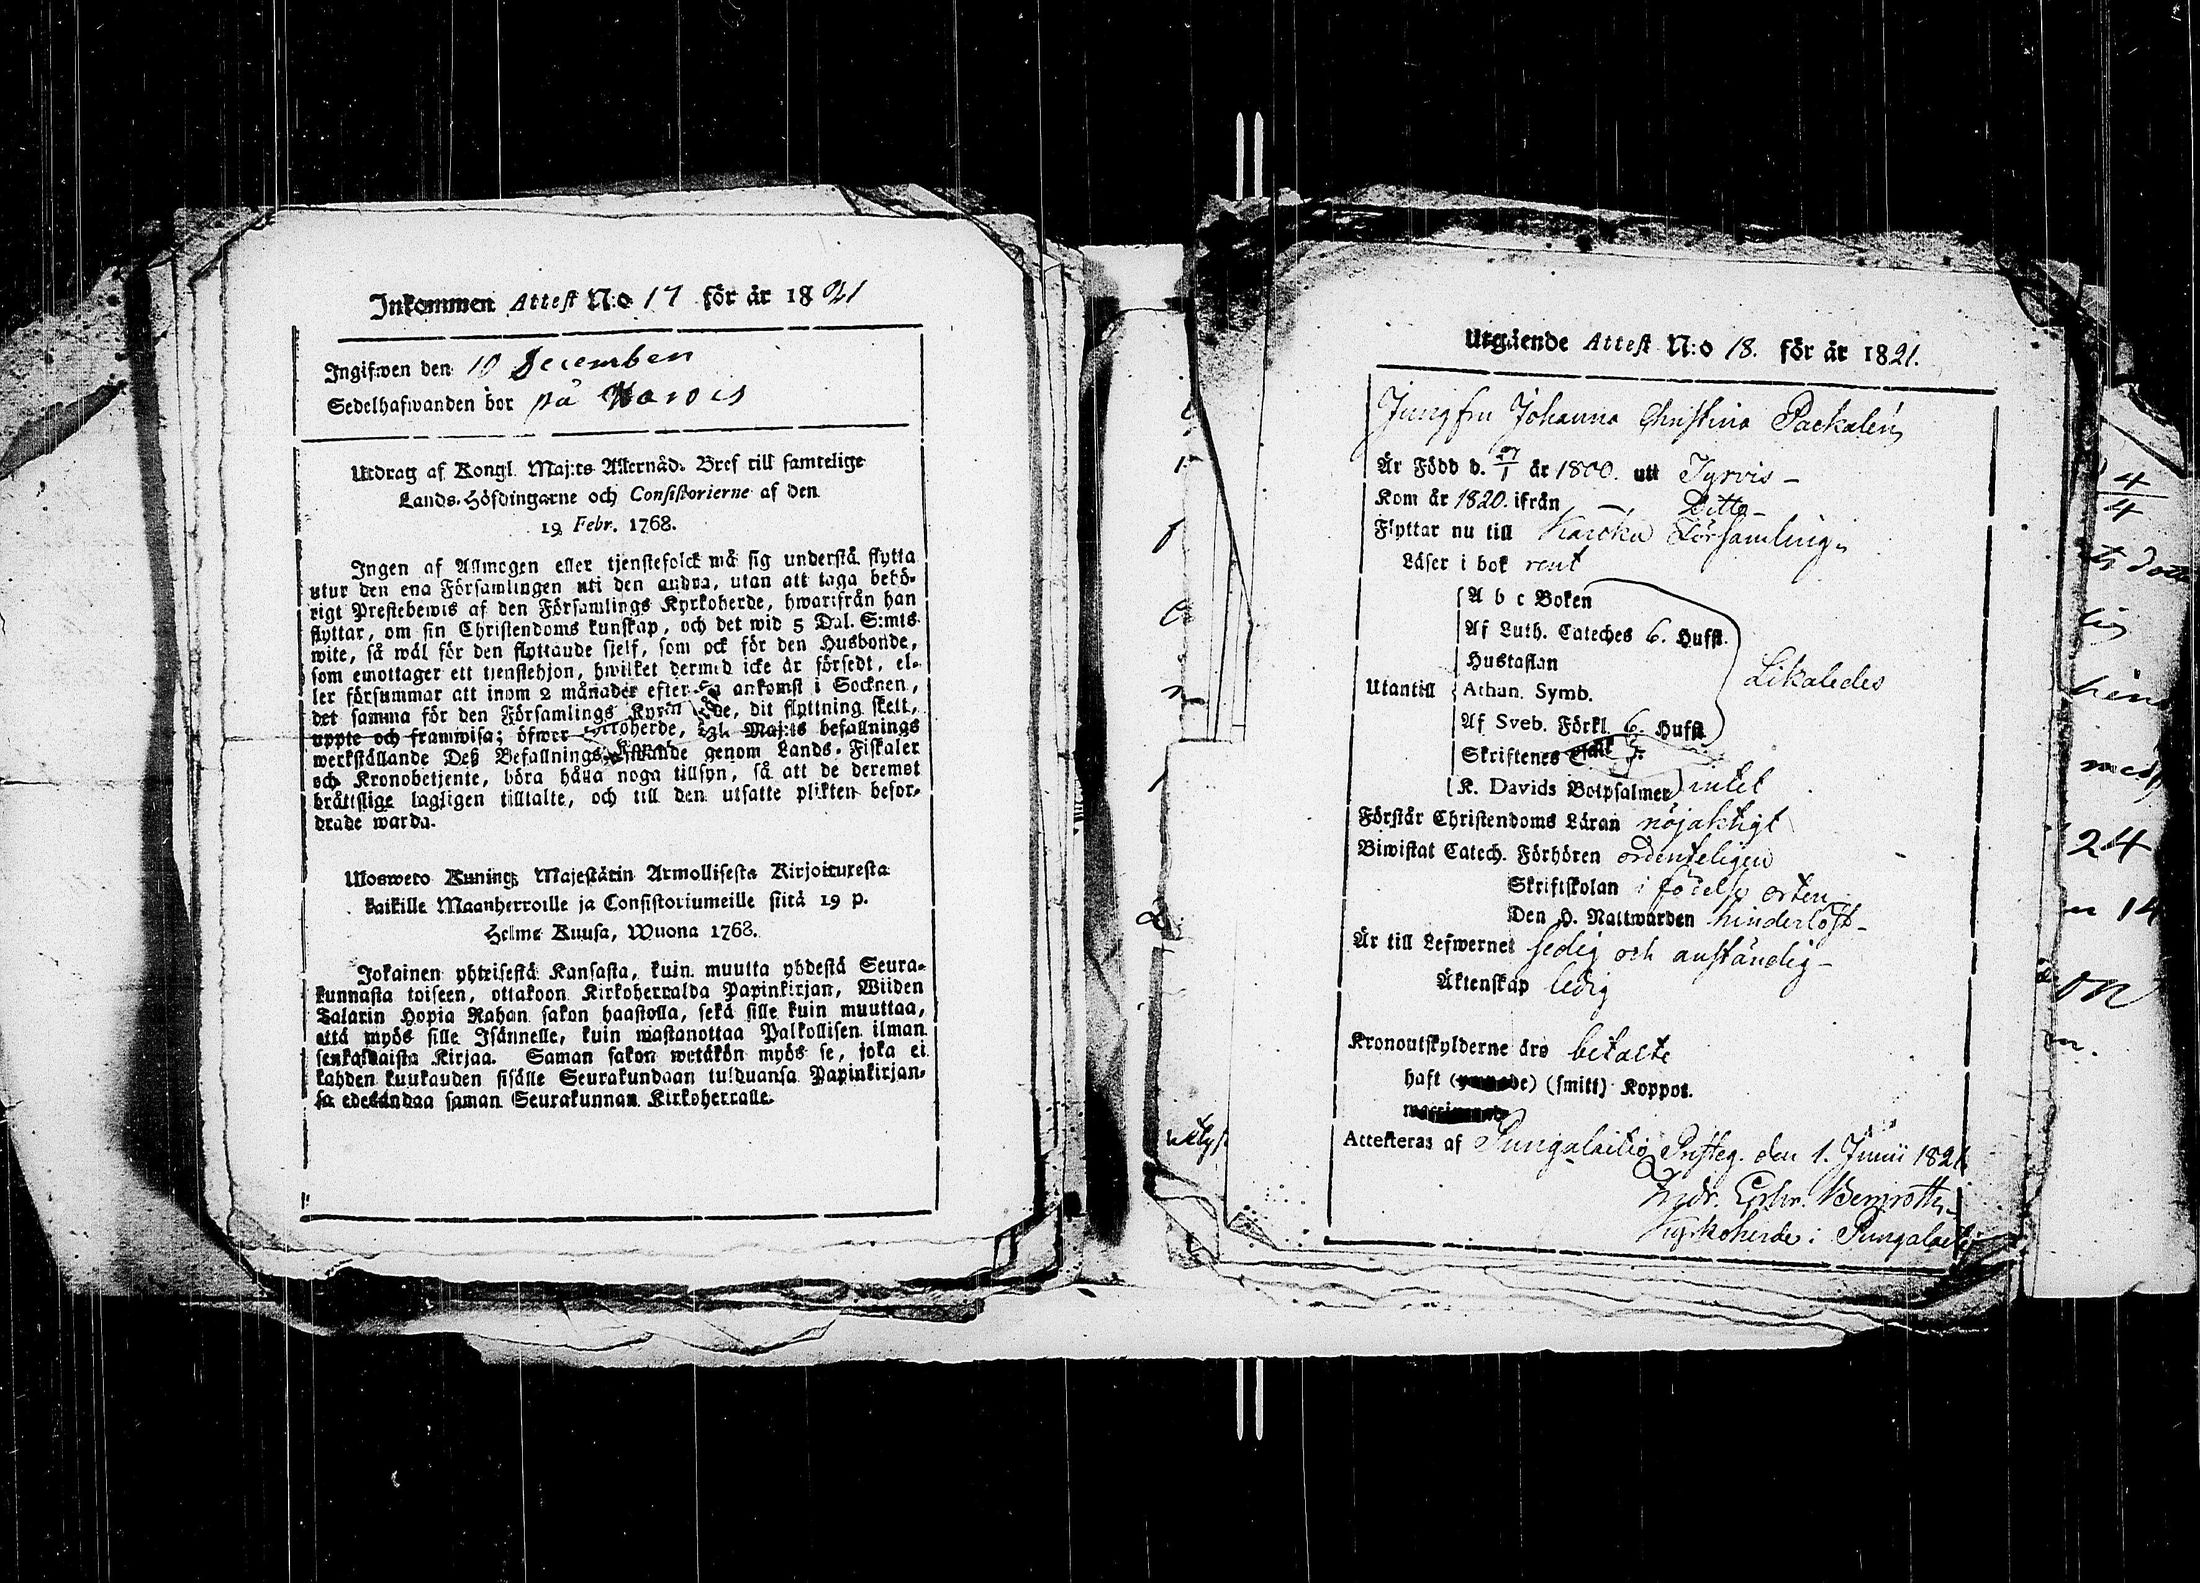 Inkommen Attest N:o 17 för år 1821
Ingifwen den 10 December
Sedelhafwanden bor på
Utdrag af Kongl. Maj:ts Allernåd. Bref till samtelige
Lands-Höfdingarne och Consistorierne af den
19 Febr. 1768.
Ingen af Allmogen eller tjenstefolck må sig understå flytta
utur den ena Församlingen uti den andra, utan att taga behö-
rigt Prestebewis af den Församlings Kyrkoherde, hwarifrån han
flyttar, om sin Christendoms kunskap, och det wid 5 Dal. S:mts
wite, så wäl för den flyttande sjelf, som ock för den Husbonde,
som emottager ett tjenstehjon, hwilket dermed icke är försedt, el-
ler försummar att inom 2 månader efter ankomst i Socknen,
det samma för den Församlings dit flyttning skett,
uppte och framwisa; öfwer Maj:ts befallnings
werkställande Deß Befallningshafwande genom Lands-Fiskaler
och Kronobetjente, böra hålla noga tillsyn, så att de deremot
bråttslige lagligen tilltalte, och till den utsatte plikten befor-
drade warda.
Uloswero Kuningz Majestätin Armollisesta Kirjoituxesta
kaikille Maanherroille ja Consistoriumeille siitä 19 p.
Helme Kuusa, Wuona 1768.
Jokainen yhteisestä Kansasta, kuin muutta yhdestä Seura-
kunnasta toiseen, ottakoon Kirkoherralda Papinkirjan, Wiiden
Talarin Hopia Rahan sakon haastolla, sekä sille kuin muuttaa,
että myös sille Isännelle, kuin wastanottaa Palkollisen ilman
senkaltaista Kirjaa. Saman sakon wetäkön myös se, joka ei
kahden kuukauden sisälle Seurakundaan tulduansa Papinkirjan-
sa edesandaa saman Seurakunnan Kirkoherralle.
Utgående Attest N:o 18. för år 1821.
Jungfru Johanna Christina Packalén
Är Född d. 27/1 år 1800. utt Tyrvis –
Kom år 1820. ifrån — Ditto –
Flyttar nu till Karcku Församling
Läser i bok rent
A b c Boken
Af Luth. Cateches 6. Hufst.
Hustaflan
Utantill Athan. Symb. Likaledes
Af Sveb. Förkl. 6. Hufst.
Skriftenes
K. Davids Botpsalmer intet
Förstår Christendoms Läran nöjaktigt
Biwistat Catech. Förhören ordenteligen
Skriftskolan i födelse orten
Den H. Nattwarden hinderlöst –
Är till Lefwernet sedig och anständig –
Äktenskap ledig
Kronoutskylderne äro betalte
haft (smitt) Koppor.
Attesteras af Pungalaitio Prsteg. den 1. Junii 1821
Kyrkoherde i Pungalaitio